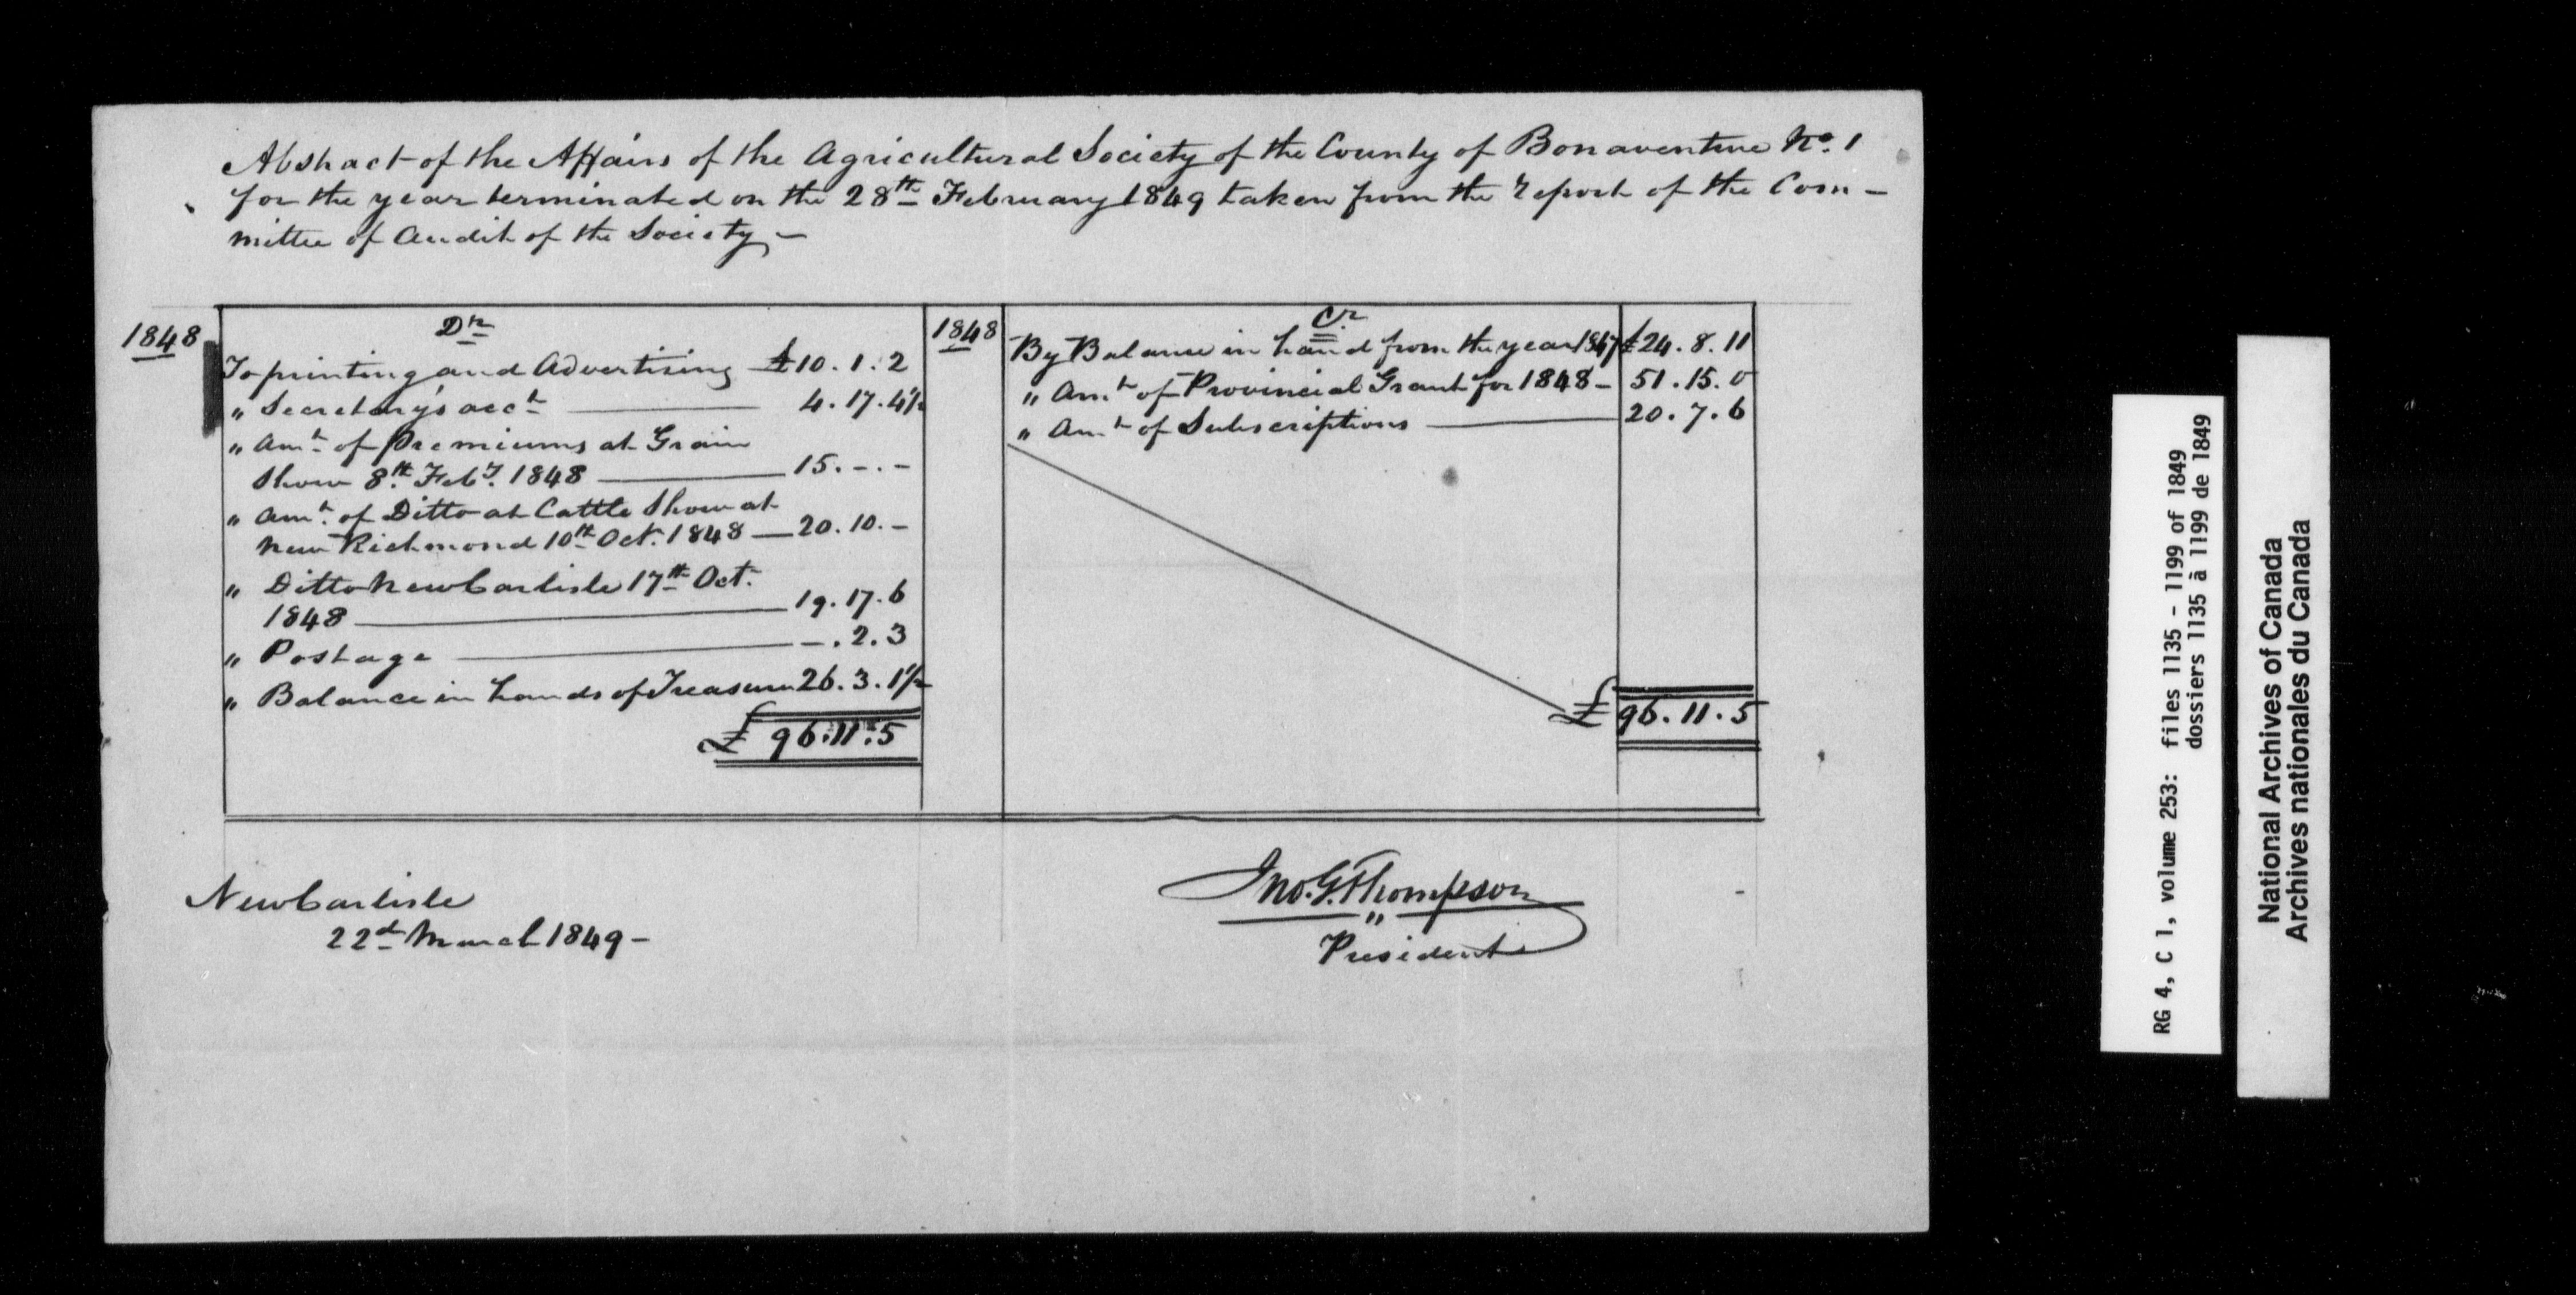 Abstract of the Affairs of the Agricultural Society of the County of Bonaventure No. 1
for the year terminated on the 28th February 1849 taken from the report of the Com-
mittee of Audit of the Society -
1848
Dr
To printing and Advertising £10.1.2
" Secretary's acct 4.17.4½
" Amt. of Premiums at Grain
Show 8th Feby. 1848 15.-.-
" Amt. of Ditto at Cattle Show at
New Richmond 10th Oct. 1848 20.10.-
" Ditto New Carlisle 17th Oct.
1848 19.17.6
" Postage -.2.3
" Balance in hands of Treasurer 26.3.1½
£ 96.11.5
1848
Cr
By Balance in hand from the year 1847 £24.8.11
" Amt of Provincial Grant for 1848 - 51.15.0
" Amt of Subscriptions 20.7.6
£ 96.11.5
New Carlisle
22d March 1849 -
Jno. G. Thompson
"
President
RG 4, C 1, volume 253: files 1135 - 1199 of 1849
dossiers 1135 à 1199 de 1849
National Archives of Canada
Archives nationales du Canada